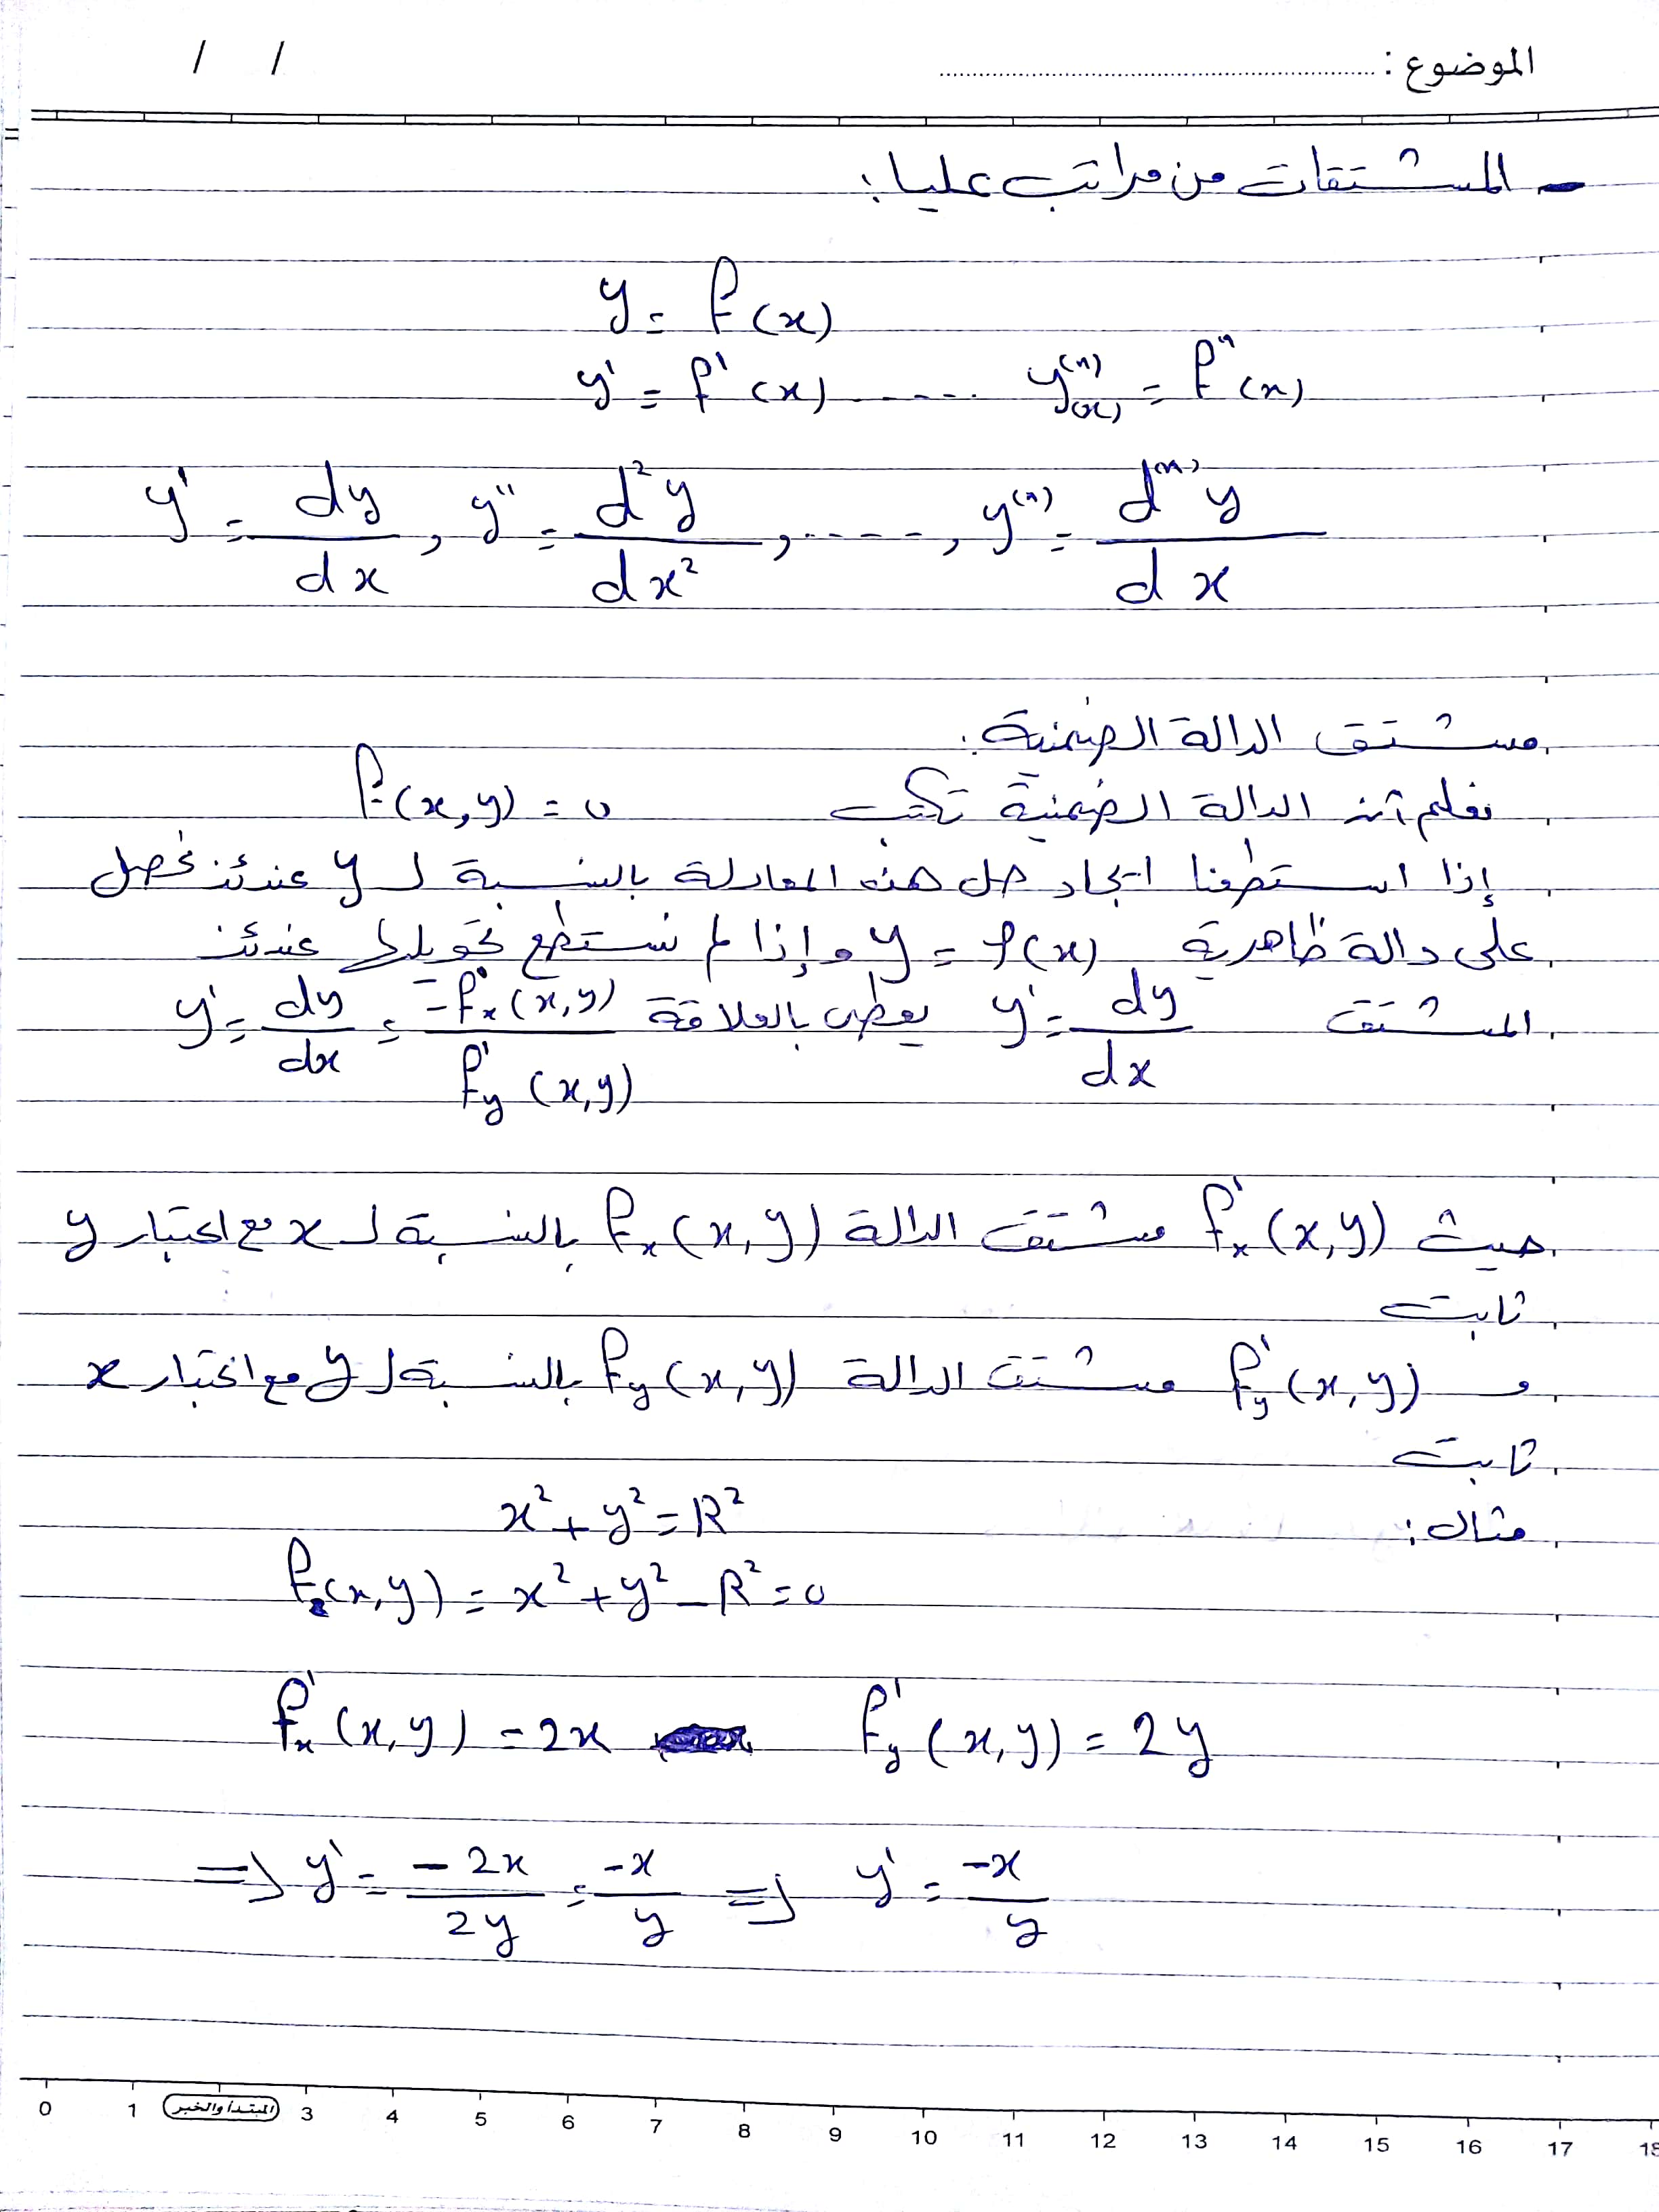 الموضوع : ........................ / /
- المشتقات من مراتب عليا :
y = f(x)
y' = f'(x) ..... y^(n)(x) = f^n(x)
y' = dy/dx , y'' = d²y/dx² , ..... , y^(n) = d^(n)y/dx
مشتق الدالة الضمنية :
نعلم أن الدالة الضمنية تكتب f(x,y) = 0
إذا استطعنا ايجاد حل هذه المعادلة بالنسبة لـ y عندئذ نحصل
على دالة ظاهرية y = f(x) وإذا لم نستطع تحويلها عندئذ
المشتق y' = dy/dx يعطى بالعلاقة y' = dy/dx = -f'x(x,y)/f'y(x,y)
حيث f'x(x,y) مشتق الدالة fx(x,y) بالنسبة لـ x مع اعتبار y
ثابت
و f'y(x,y) مشتق الدالة fy(x,y) بالنسبة لـ y مع اعتبار x
ثابت
مثال : x² + y² = R²
f(x,y) = x² + y² - R² = 0
f'x(x,y) = 2x f'y(x,y) = 2y
=> y' = -2x/2y = -x/y => y' = -x/y
0 1 المبتدأ والخبر 3 4 5 6 7 8 9 10 11 12 13 14 15 16 17 18